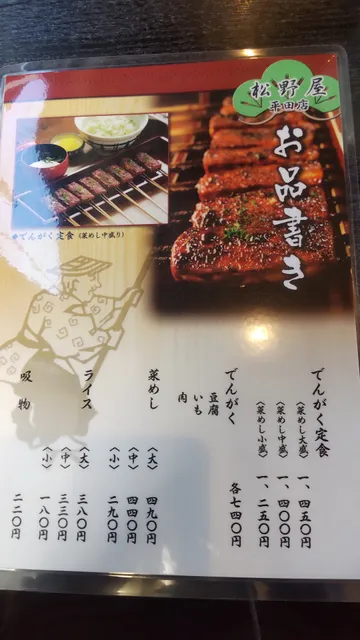 松野屋
平田店
お品書き
※でんがく定食(菜めし中盛り)
でんがく定食
〈菜めし大盛〉 一、四五〇円
〈菜めし中盛〉 一、四〇〇円
〈菜めし小盛〉 一、二五〇円
でんがく
豆腐
いも
肉
各七四〇円
菜めし
〈大〉 四九〇円
〈中〉 四四〇円
〈小〉 二九〇円
ライス
〈大〉 三八〇円
〈中〉 三三〇円
〈小〉 一八〇円
吸物
二二〇円